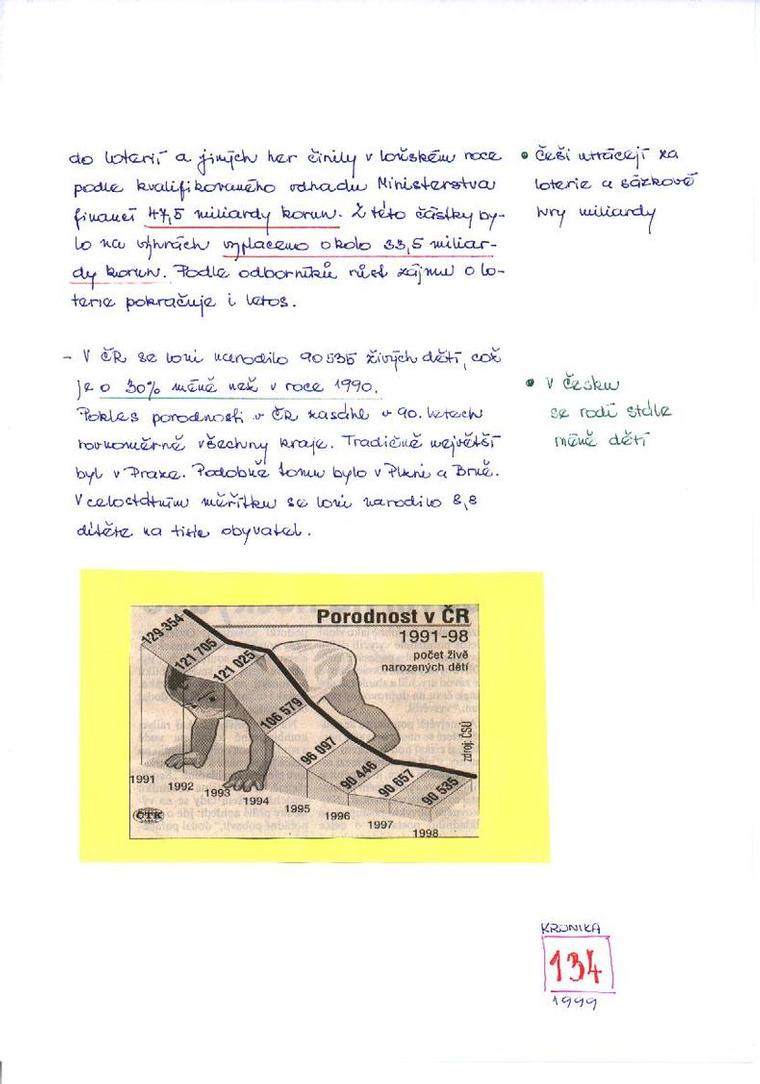 do loterií a jiných her činily v loňském roce
podle kvalifikovaného odhadu Ministerstva
financí 47,5 miliardy korun. Z této částky by-
lo na výhrách vyplaceno okolo 33,5 miliar-
dy korun. Podle odborníků růst zájmu o lo-
terie pokračuje i letos.
• Češi utrácejí za
loterie a sázkové
hry miliardy
- V ČR se loni narodilo 90535 živých dětí, což
je o 30% méně než v roce 1990.
Pokles porodnosti v ČR zasáhl v 90. letech
rovnoměrně všechny kraje. Tradičně největší
byl v Praze. Podobně tomu bylo v Plzni a Brně.
V celostátním měřítku se loni narodilo 8,8
dítěte na tisíc obyvatel.
• V Česku
se rodí stále
méně dětí
Porodnost v ČR
1991-98
počet živě
narozených dětí
129 354
121 705
121 025
106 579
96 097
90 446
90 657
90 535
zdroj: ČSÚ
1991
1992
1993
1994
1995
1996
1997
1998
ČTK
KRONIKA
134
1999